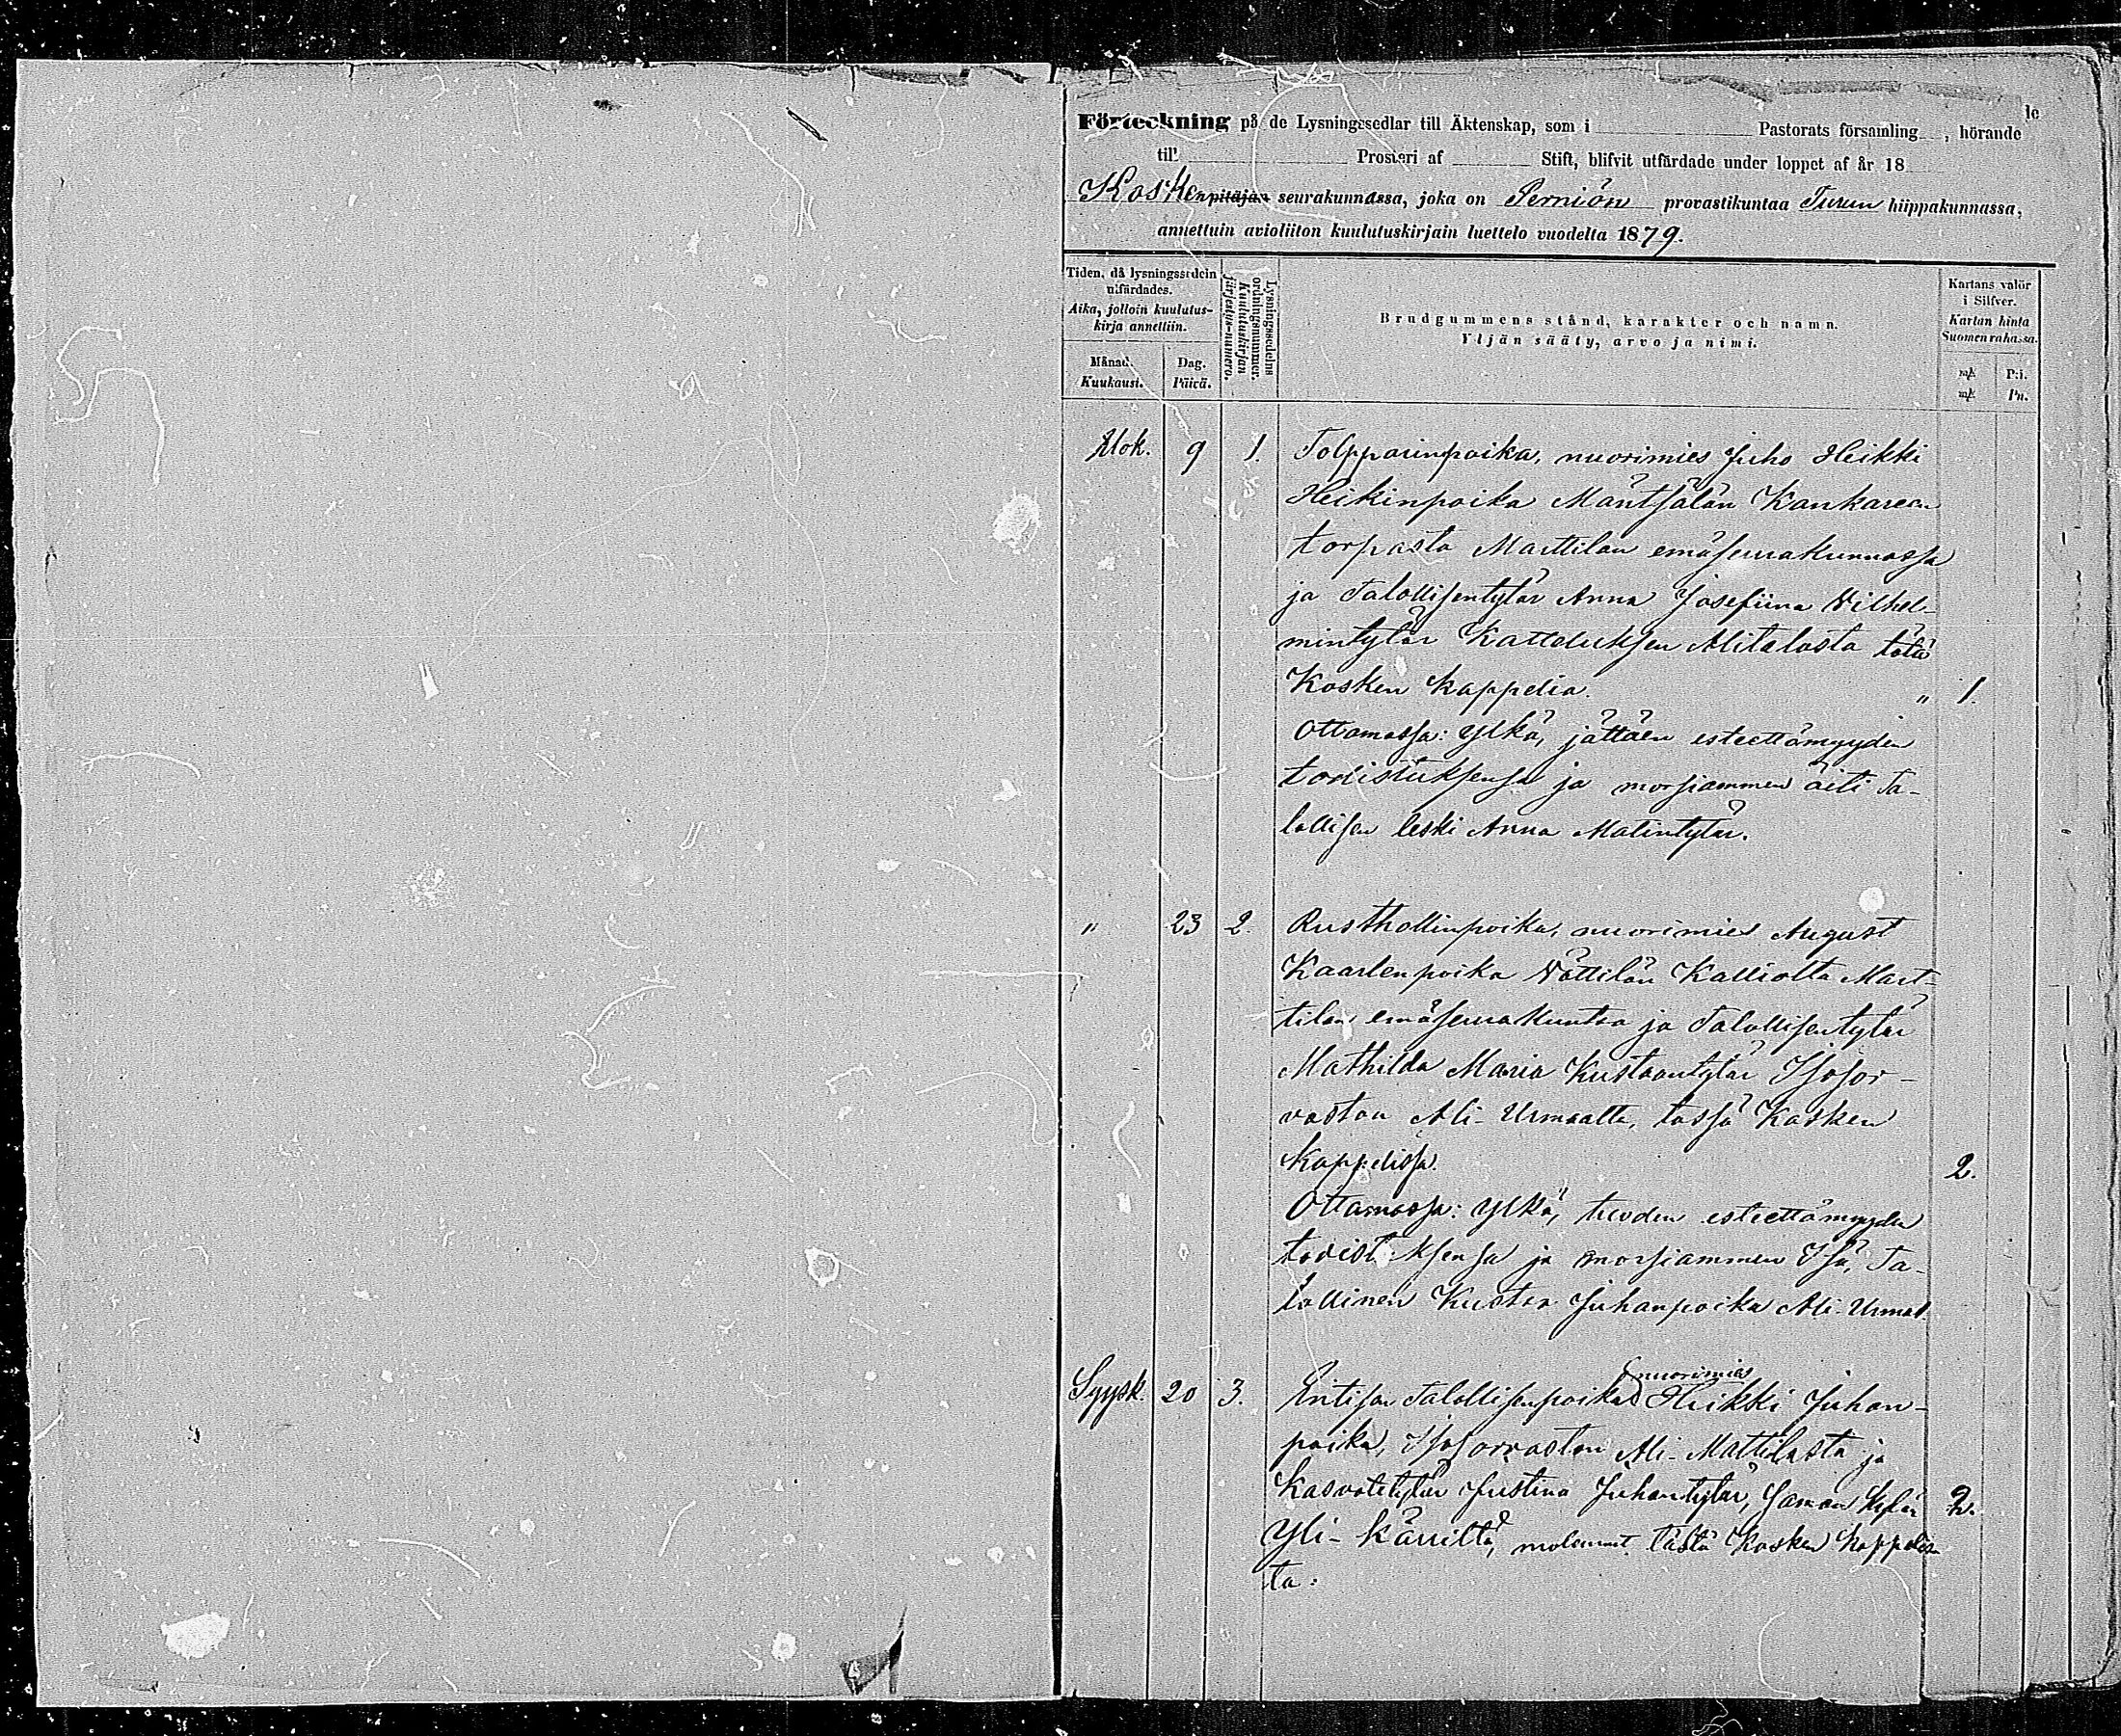 1c
Förteckning på de Lysningssedlar till Äktenskap, som i Pastorats församling, hörande
till Prosteri af Stift, blifvit utfärdade under loppet af år 18
Koskenpitäjän seurakunnassa, joka on Perniön provastikuntaa Turun hiippakunnassa,
annettuin avioliiton kuulutuskirjain luettelo vuodelta 1879.
Tiden, då lysningssedeln utfärdades.
Aika, jolloin kuulutuskirja annettiin.
Månad. Kuukausi.
Dag. Päivä.
Lysningssedelns ordningsnummer.
Kuulutuskirjan järjestys-numero.
Brudgummens stånd, karakter och namn.
Yljän sääty, arvo ja nimi.
Kartans valör i Silfver.
Kartan hinta Suomen rahassa.
mk P:i.
mk Pn.
Elok. 9 1. Tolpparinpoika, nuorimies Juho Heikki
Heikinpoika Mäntsälän Kankareen
torpasta Marttilan emäseurakunnassa
ja Talollisentytär Anna Josefiina Vilhel-
mintytär Katteluksen Alitalosta tätä
Kosken kappelia. " 1.
Ottamassa: Ylkä, jättäen esteettömyyden
todistuksensa ja morsiammen äiti Ta-
lollisen leski Anna Matintytär.
" 23 2. Rusthollinpoika, nuorimies August
Kaarlenpoika Vättilän Kalliolta Mart-
tilan emäseurakuntaa ja Talollisentytär
Mathilda Maria Kustaantytär Isosor-
vaston Ali-Urmaalta, tässä Kosken
Kappelissa. 2.
Ottamassa: Ylkä, tuoden esteettömyyden
todistuksensa ja morsiammen Isä, Ta-
lollinen Kustaa Juhanpoika Ali-Urmas.
nuorimies
Syysk. 20 3. Entisen Talollisenpoika Heikki Juhan-
poika, Isosorvaston Ali-Mattilasta ja
Kasvatetytär Justina Juhantytär, Saman kylän 2.
Yli-Kärriltä, molemmat tästä Kosken kappelis-
ta: